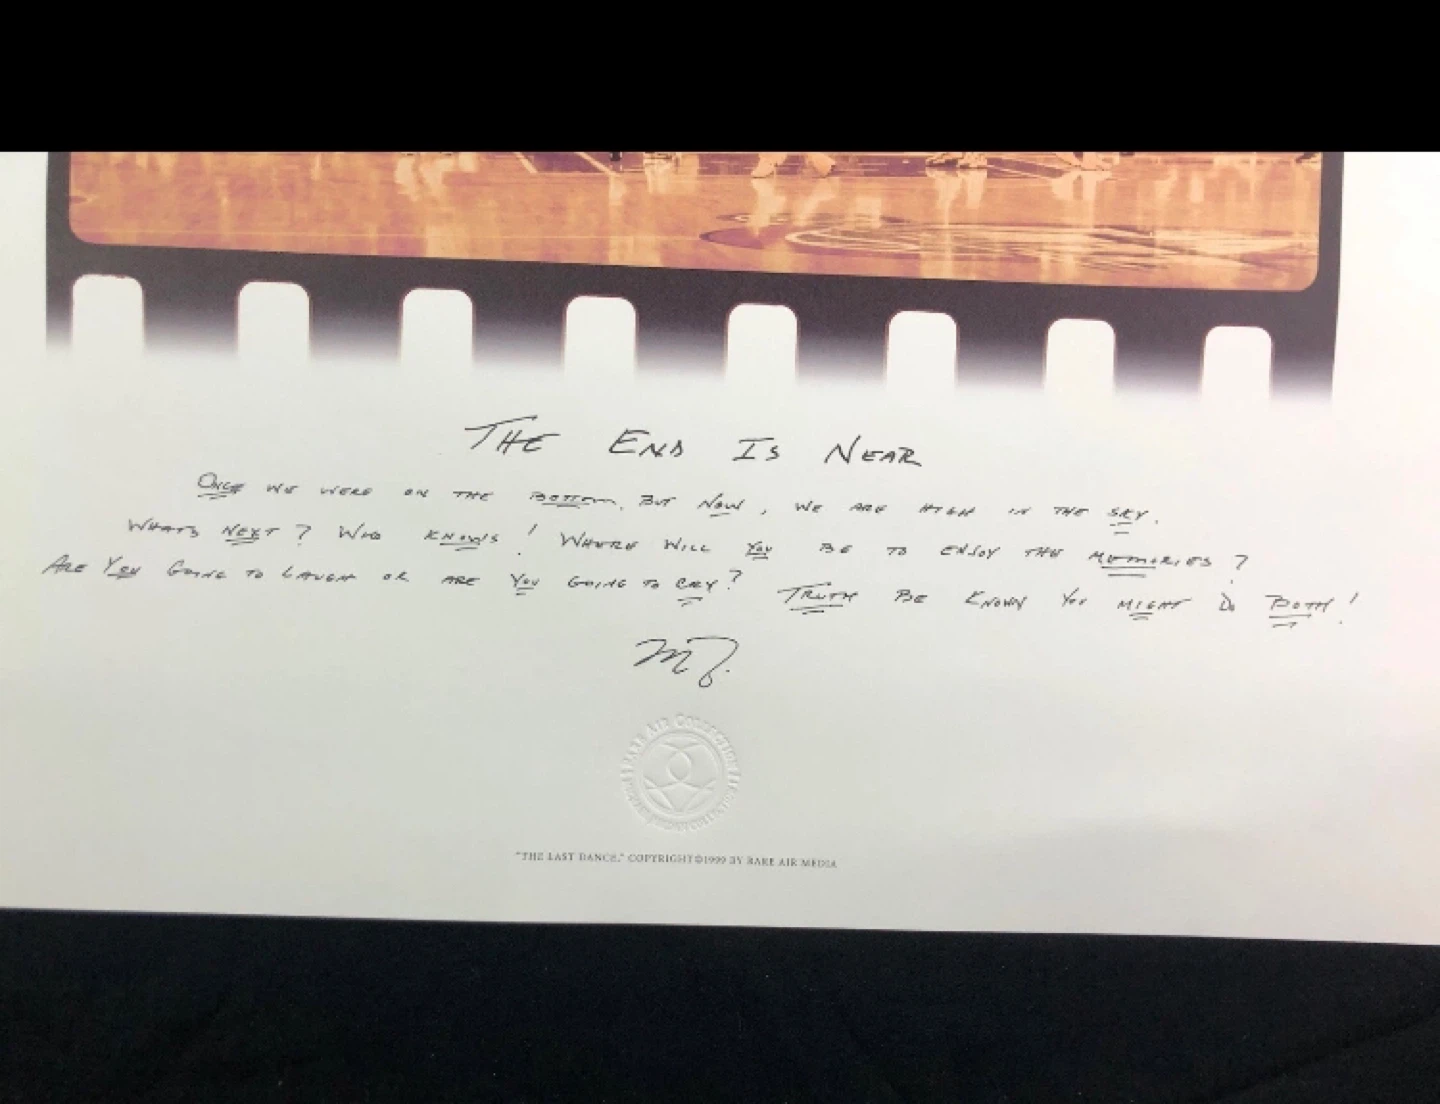 THE END IS NEAR
ONCE WE WERE ON THE BOTTOM, BUT NOW, WE ARE HIGH IN THE SKY.
WHATS NEXT? WHO KNOWS! WHERE WILL YOU BE TO ENJOY THE MEMORIES?
ARE YOU GOING TO LAUGH OR ARE YOU GOING TO CRY? TRUTH BE KNOWN YOU MIGHT DO BOTH!
MJ.
RARE AIR COLLECTION
"THE LAST DANCE," COPYRIGHT©1999 BY RARE AIR MEDIA